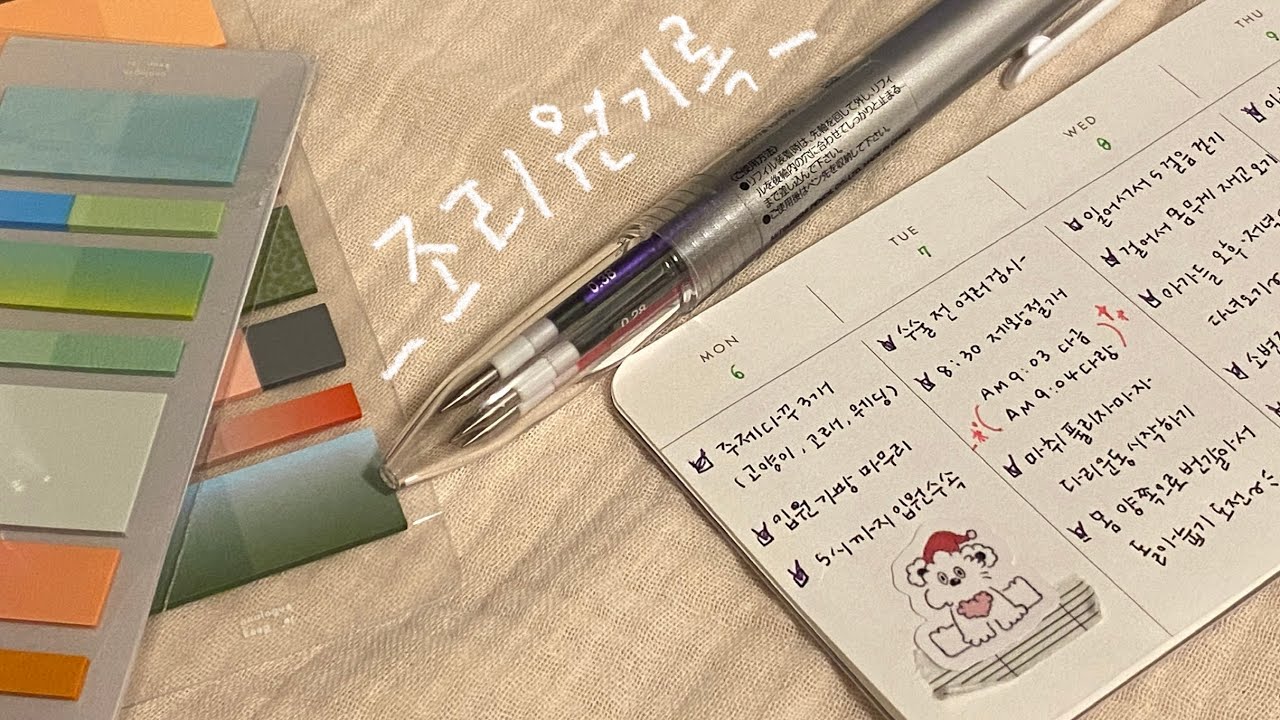 - 조리원기록 -
0.38
0.28
《ご使用方法》
●リフィル交換時は、先軸を回して外し、リフィ
ルを後軸内の穴に合わせてしっかりと止まる
まで差し込んで下さい。
●ご使用後はペン先を収納して下さい。
MON
6
주제다꾸 3개
(고양이, 고래, 웨딩)
입원가방 마무리
5시까지 입원수속
TUE
7
수술 전 여러검사
8:30 제왕절개
AM 9:03 다금
AM 9:04 다랑
마취 풀리자마자
다리운동 시작하기
몸 양쪽으로 번갈아서
돌아눕기 도전~
WED
8
일어나서 5걸음 걷기
걸어서 몸무게 재고 오기
아가들 오후·저녁
다녀오기
소변
THU
9